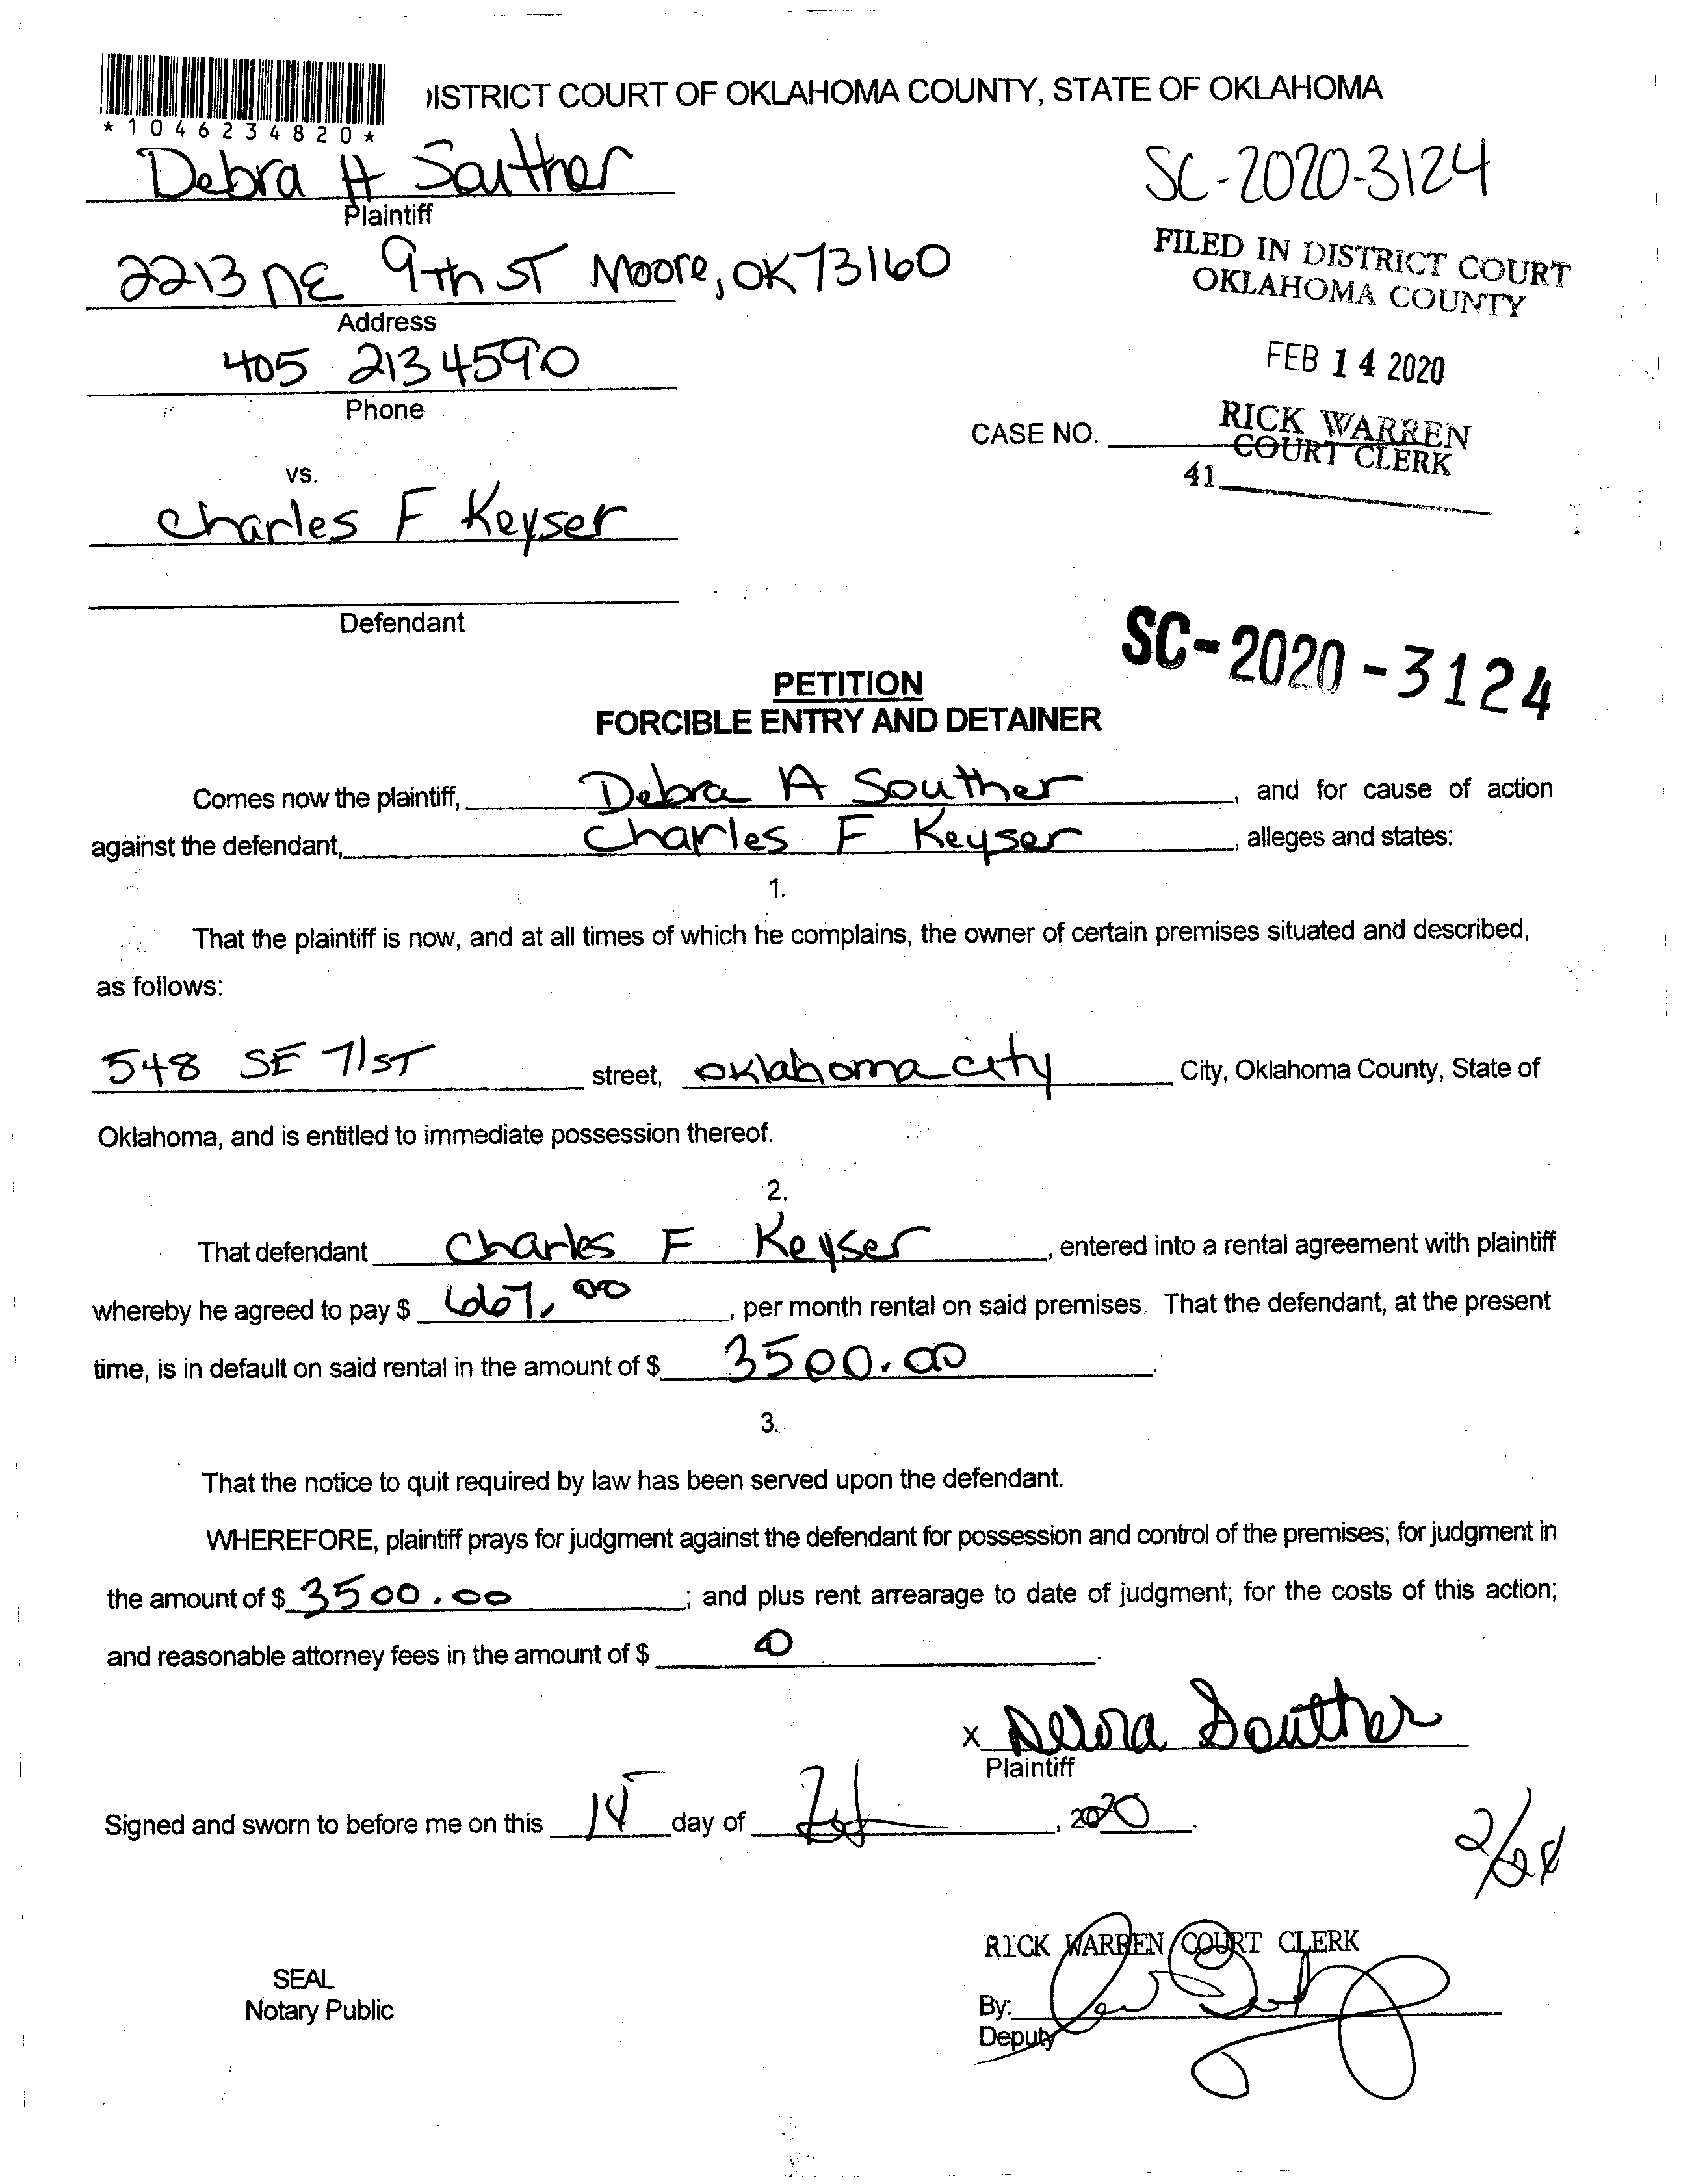 DISTRICT COURT OF OKLAHOMA COUNTY, STATE OF OKLAHOMA
*1046234820*
Debra A Souther
Plaintiff
SC-2020-3124
2213 NE 9th ST Moore, OK 73160
Address
FILED IN DISTRICT COURT
OKLAHOMA COUNTY
405 213 4590
Phone
FEB 14 2020
CASE NO.
RICK WARREN
COURT CLERK
41
vs.
Charles F Keyser
Defendant
SC-2020-3124
PETITION
FORCIBLE ENTRY AND DETAINER
Comes now the plaintiff, Debra A Souther, and for cause of action
against the defendant, Charles F Keyser, alleges and states:
1.
That the plaintiff is now, and at all times of which he complains, the owner of certain premises situated and described,
as follows:
548 SE 71ST street, oklahoma city City, Oklahoma County, State of
Oklahoma, and is entitled to immediate possession thereof.
2.
That defendant Charles F Keyser, entered into a rental agreement with plaintiff
whereby he agreed to pay $ 667.00, per month rental on said premises. That the defendant, at the present
time, is in default on said rental in the amount of $ 3500.00.
3.
That the notice to quit required by law has been served upon the defendant.
WHEREFORE, plaintiff prays for judgment against the defendant for possession and control of the premises; for judgment in
the amount of $ 3500.00; and plus rent arrearage to date of judgment; for the costs of this action;
and reasonable attorney fees in the amount of $ 0.
X Debra Souther
Plaintiff
Signed and sworn to before me on this 14 day of Feb, 2020.
RICK WARREN COURT CLERK
SEAL
Notary Public
By:
Deputy